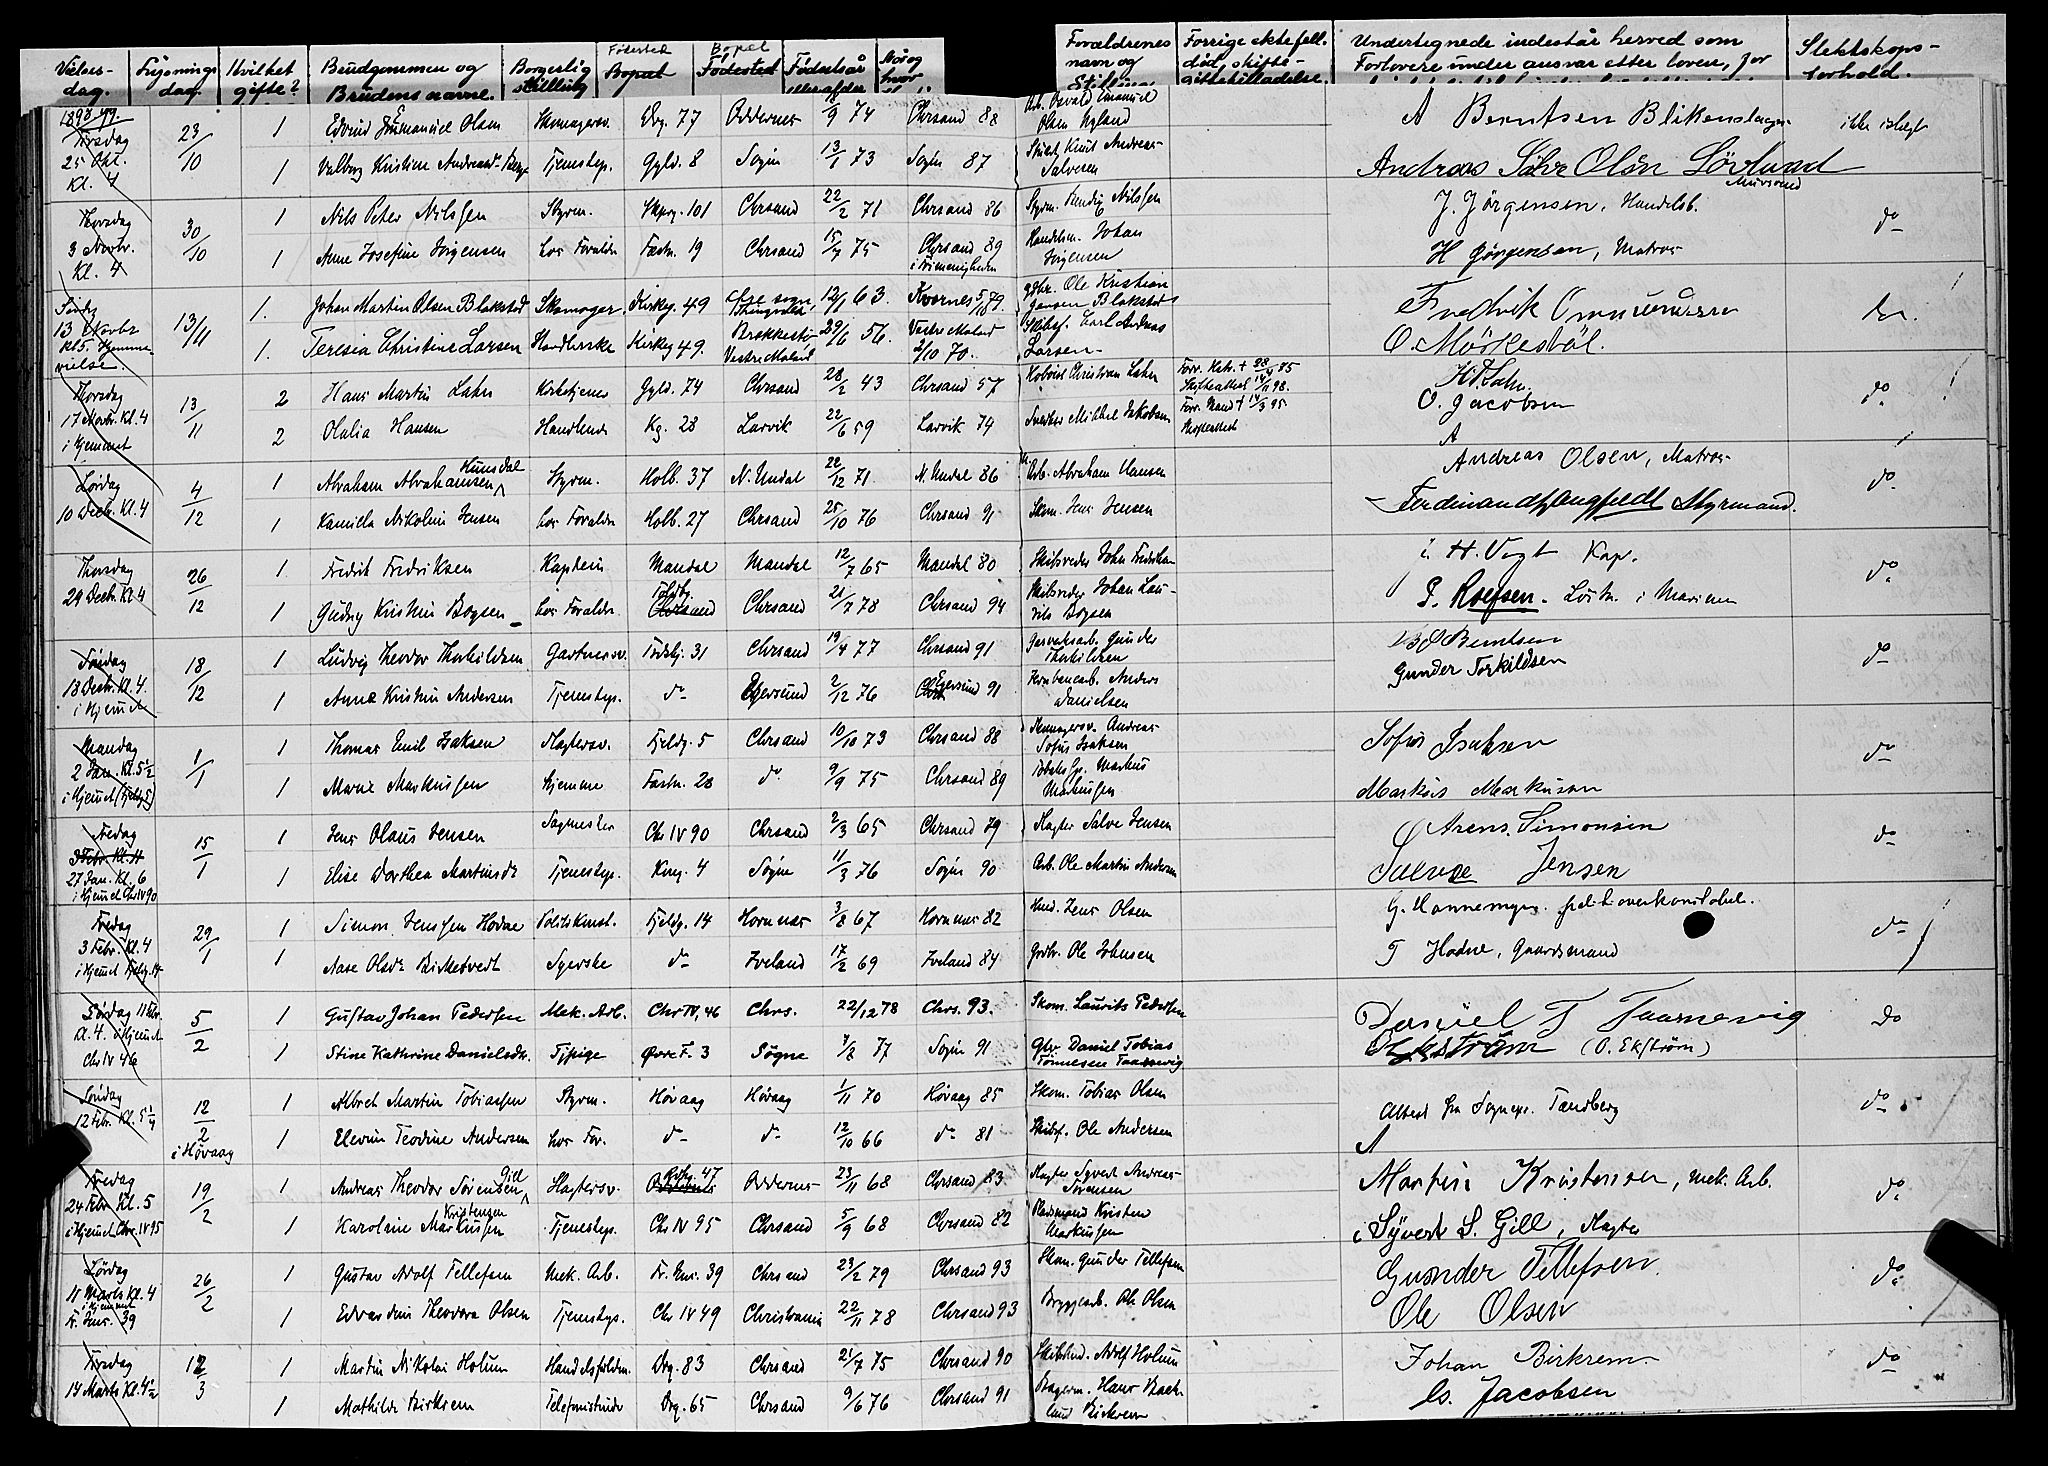 Vielses- dag. Lysnings dag. Hvilket gifte? Brudgommen og Brudens navne. Borgerlig stilling Fødested Bopæl Bopæl Fødested Fødselsår Når og hvor Forældrenes navn og Stilling Forrige ektefell. død, skifte- giftetilladelse. Undertegnede indestår herved som Forlovere under ansvar etter loven, for Slektskaps- forhold.
1898 99.
Tirsdag 25 Okt. Kl. 4 23/10 1 Edvind Emmanuel Olsen Skomagersv. Drg. 77 Oddernes 74 Chrsand 88 Arb. Osvald Emanuel Olsen Nyland A Berntsen Blikenslager ikke islægt
1 Valborg Kristine Andreasd. Berge Tjenestep. Gyld. 8 Søgne 13/1 73 Søgne 87 Knud Andreas Salvesen Andreas Olsen Løvlund Murmand
Thorsdag 3 Novbr. Kl. 4 30/10 1 Nils Peter Nilssen Styrm. 101 Chrsand 22/2 71 Chrsand 86 Styrm. Nilssen J. Jørgensen, Handelsb. do
1 Anne Josefine Jørgensen hos Foræld. Fæstn. 19 Chrsand 15/7 75 Chrsand 89 i Frimenigheden Handelsm. Johan Jørgensen H Jørgensen, Matros
Søndg 13 Novbr Kl 5. Hjemme- vielse. 13/11 1. Johan Martin Olsen Blakstad Skomager Kirkeg. 49 Øse sogn Thingvold 12/1 63. Kvernes 5/10 79 gdbr. Ole Kristian Jensen Blakstad Fredrik Ommundsen do.
1. Teresia Christine Larsen Handlerske Kirkeg 49. Brekkestø Vestre Moland 29/6 56. Vestre Moland 2/10 70. Skibsf. Carl Andreas Larsen O. Mørkesdøl.
Thorsdag 17 Novbr. Kl. 4 i Hjemmet 13/11 2 Hans Martin Lahn Kirketjener Gyld. 74 Chrsand 28/2 43 Chrsand 57 Christian Lahn Forr. Hstr. + 28/4 85 Skifteattest 14/11 98. H Lahn. do
2 Olalia Hansen Handlende Kg. 28 Larvik 22/6 59 Larvik 74 Snedker Mikkel Jakobsen Forr. Mand + 14/3 95 Skifteattest O. Jacobsen
A
Lørdag 10 Decbr. Kl. 4 4/12 1 Abraham Abrahamsen Kunsdal Styrm. Holb. 37 N. Undal 22/12 71 N. Undal 86 Arb. Abraham Hansen Andreas Olsen, Matros do
1 Kamilla Nikoline Jensen hos Foræld. Holb. 27 Chrsand 25/10 76 Chrsand 91 Skom. Jens Jensen Ferdinand Langfeldt Styrmand.
Thorsdag 29 Decbr. Kl. 4 26/12 1 Fredrik Fredriksen Kaptein Mandal Mandal 12/7 65 Mandal 80 Skibsreder John Fredriksen H. Vogt Kap. do
1 Gudny Kristine Boysen hos Foræld. Chrsand Chrsand 21/7 78 Chrsand 94 Skibsreder Johan Lauritz Boysen P. Roefsen. i Marinen
Søndag 18 Decbr. Kl. 4. i Hjemmet 18/12 1 Ludvig Theodor Thorkildsen Gartnersv. Tordskj. 31 Chrsand 19/4 77 Chrsand 91 Garveriarb. Gunder Thorkildsen Berntsen do
1 Anna Kristine Andersen Tjenestep. do Egersund 2/12 76 Egersund 91 Anders Danielsen Gunder Torkildsen
Mandag 2 Jan. Kl. 5½ i Hjemmet (Fjeldg. 5) 1/1 1 Thomas Emil Isaksen Slagtersv. Fjeldg. 5 Chrsand 10/10 73 Chrsand 88 Skomagersv. Andreas Sofus Isaksen Sofus Isaksen do
1 Marie Markussen hjemme Fæstn. 28 do 9/9 75 Chrsand 89 Markus Markussen Markus Markussen
Fredag 3 Febr. Kl. 4 27 Jan. Kl. 6 i Hjemmet Chr IV 90 15/1 1 Jens Olaus Jensen Sagmester Chr IV 90 Chrsand 2/3 65 Chrsand 79 Slagter Salve Jensen Arens. Simonsen do
1 Elise Dorthea Martinsdt. Tjenestep. Kng. 4 Søgne 11/3 76 Søgne 90 Arb. Ole Martin Andersen Salve Jensen
Fredag 3 Febr. Kl. 4 i Hjemmet Fjeldg. 14 29/1 1 Simon Jenssen Hodne Politikonst. Fjeldg. 14 Hornnes 3/8 67 Hornnes 82 Hmd. Jens Olsen G. Mannemyr. politioverkonstabel. do
1 Aase Olsdt. Birketvedt Syerske do Iveland 17/2 69 Iveland 84 Grdbr. Ole Johnsen T Hodne, Gaardmand
Lørdag 11 Febr. Kl. 4. i Hjemmet Chr IV 46 5/2 1 Gustav Johan Pedersen Mek. Arb. Chr IV, 46 Chrs. 22/12 78 Chrs. 93. Skom. Laurits Pedersen Daniel T Taarnevig do
1 Stine Kathrine Danielsdt. Tjpige Øvre F. 3 Søgne 7/2 77 Søgne 91 Gbr Daniel Tobias Tønnesen Taarnevig Ekstrøm (O. Ekstrøm)
Søndag 12 Febr. Kl. 5¼ 12/2 i Høvaag 1 Albret Martin Tobiassen Styrm. Høvaag Høvaag 1/11 70 Høvaag 85 Skom. Tobias Olsen Attest fra Sognepr. Tandberg do
1 Elevine Teodine Andersen hos For. do do 12/10 66 do 81 Skibsf. Ole Andersen A
Fredag 24 Febr Kl. 5 i Hjemmet Chr. IV 95 19/2 1 Andreas Theodor Sørensen Gill Slagtersv. 47 Oddernes 23/11 68 Chrsand 83 Slagter Syvert Andreas Sørensen Martin Kristensen, mek. Arb. do
1 Karoline Markussen Kristensen Tjenestep. Chr IV 95 Chrsand 5/9 68 Chrsand 82 Kristen Markussen Syvert S. Gill, Slagter
Lørdag 11 Marts Kl. 4 i Hjemmet Fr. Jons. 39 26/2 1 Gustav Adolf Tellefsen Mek. Arb. 39 Chrsand 23/2 79 Chrsand 93 Skom. Gunder Tellefsen Gunder Tellefsen. do
1 Edvardine Theodora Olsen Tjenestep. Chr IV 49 Christiania 22/11 78 Chrsand 93 Bryggearb. Ole Olsen Ole Olsen
Tirsdag 14 Marts Kl. 4½ 12/3 1 Martin Nikolai Holum Handelsfuldm. Drg. 83 Chrsand 21/7 75 Chrsand 90 Adolf Holum Johan Birkrem do
1 Mathilde Birkrem Telefonistinde Drg. 65 Chrsand 9/6 76 Chrsand 91 Bagerm. Hans Birkrem Cs. Jacobsen